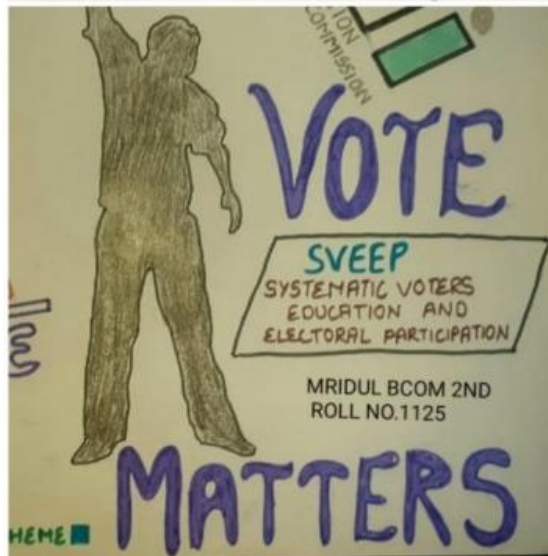 TION
COMMISSION
VOTE
SVEEP
SYSTEMATIC VOTERS
EDUCATION AND
ELECTORAL PARTICIPATION
MRIDUL BCOM 2ND
ROLL NO.1125
MATTERS
HEME